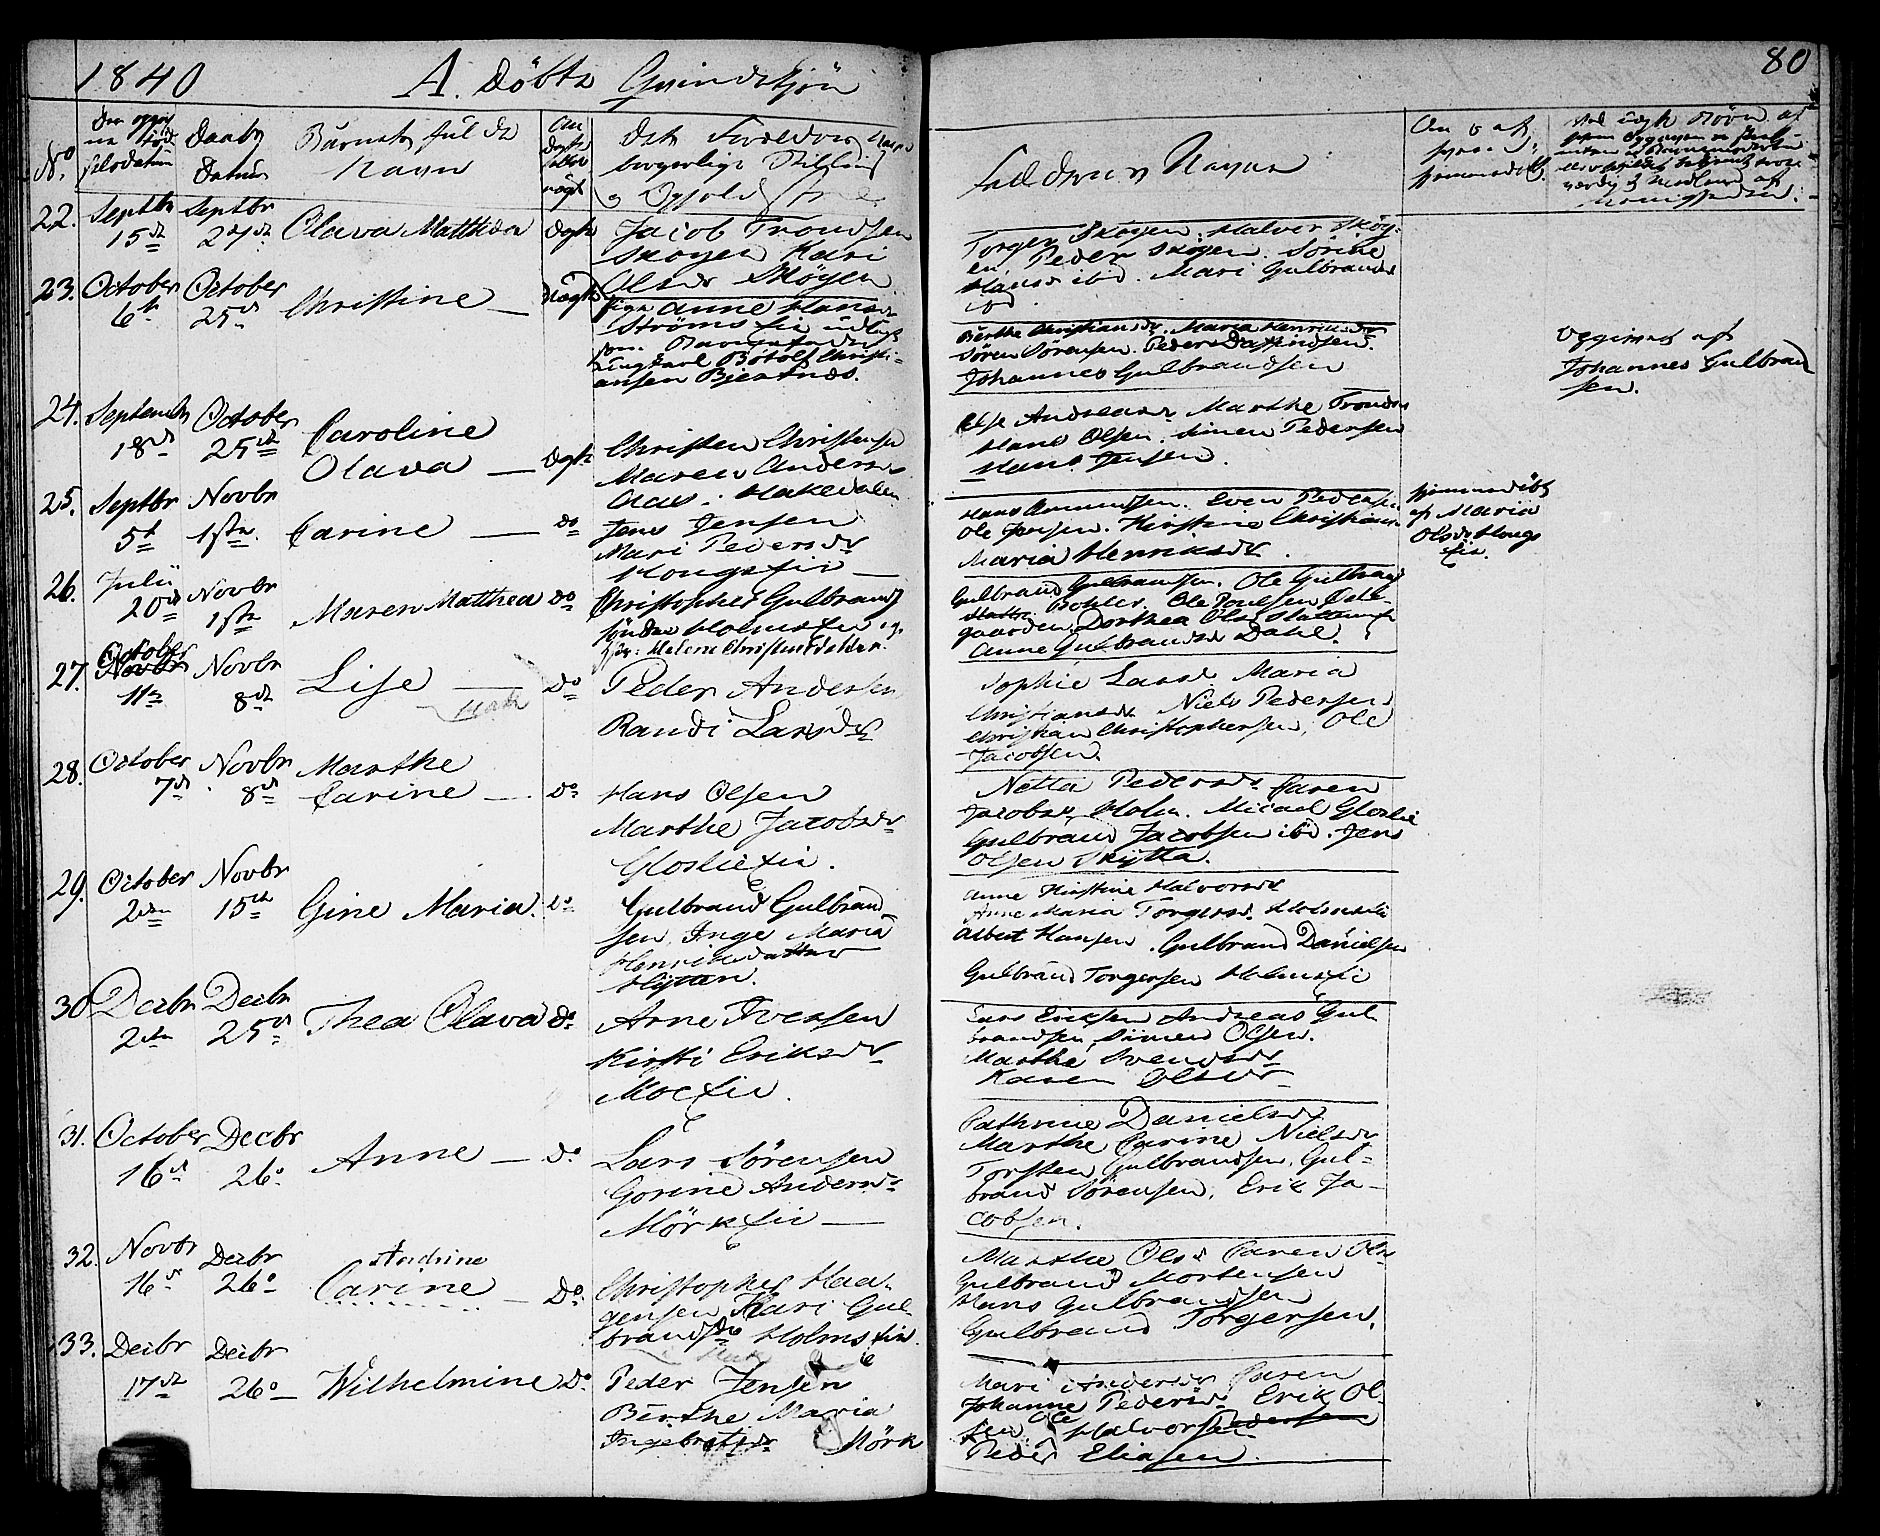 1840 A. Döbte Qvindekjön
80
No.
Daabs
Datum
Barnets fulde
Navn
Faddernes Navne
22. Septbr 15de Septbr 27de Olava Matthea Ægte Jacob Trondsen
Skøyen Kari
Olsdr Skøyen
Torger Skøyen. Halvor Skøy-
en, Peder Skøyen. Sørine
Hansd ibid. Mari Gulbrandsd
ibid
23. October 6te October 25de Christine — Uægte
Pige Anne Hansdr
Strømseie
Ungkarl Botolf Christi-
ansen Bjertnæs.
Berthe Christiansdr. Maria Henriksdr
Søren Sørensen. Peder
Johannes Gulbrandsen
af
Johannes Gulbrand
sen.
24. Septembr 18de October 25de Caroline
Olava — Ægte Christen Christensen
Maren Andersdr
Aas. Hakedalen
Else Andreasdr Marthe Trondsdr
Hans Olsen. Simen Pedersen
Hans Jensen.
25. Septbr 5te Novbr 1ste Carine — do Jens Jensen
Mari Pedersdr
Haugseie —
Hans Amundsen. Even Pedersen
Ole Jensen. Kirstine Christiansd
Maria Henriksdr.
hjemmedöbt
af Maria
Olsdr Haugs
eie.
26. Julii 20de Novbr 1ste Maren Matthea do Christopher Gulbrand
sen Holmseie og
Helene
Gulbrand Gulbrandsen. Ole Gulbrands
Bohler. Ole Poulsen Dæle-
gaarden Dorthea Olsd
Anne Gulbrandsd Dahl.
27. October
Novbr
11te Novbr 8de Lise — do Peder Andersen
Randi Larsdr
Sophie Larsd. Maria
Christiansdr Niels Pedersen
Christian Christophersen, Ole
Jacobsen.
28. October 7de Novbr 8de Marthe
Carine — do Hans Olsen
Marthe Jacobsdr
Gloslieeie.
Netta Pedersdr Caren
Jacobsdr Holm. Micael Gloslie
Gulbrand Jacobsen ibid. Jens
Olsen Skytta.
29. October 2den Novbr 15de Gine Maria. do Gulbrand Gulbrand
sen, Inge Maria
Henriksdatter
Hyttan.
Anne Kirstine Halvorsdr
Anne Maria Torgersd. Holmseie
Albert Hansen. Gulbrand Danielsen
Gulbrand Torgersen Holmseie
30 Decbr 2den Decbr 25de Thea Olava do Arne Iversen
Kirsti Eriksdr
Moeeie.
Lars Eriksen Andreas Gul
brandsen, Simen Olsen.
Marthe Svendsdr
Karen Olsdr
31. October 16de Decbr 26o Anne — do Lars Sørensen
Gorine Andersdr
Mørkeie —
Cathrine Danielsdr
Marthe Carine Nielsdr
Torsten Gulbrandsen, Gul-
brand Sørensen, Erik Ja-
cobsen.
32. Novbr 16de Decbr 26o Andrine
Carine — Do. Christopher Haa-
gensen Kari Gul
brandsdr Holmseie
Marthe Olsd Caren Olsd
Gulbrand Mortensen
Hans Gulbrandsen
Gulbrand Torgersen.
33. Decbr 17de Decbr 26o Wilhelmine Do. Peder Jensen
Berthe Maria
Ingebretsdr Mørk
Mari Andersdr Caren
Johanne Pedersd. Erik Ol-
sen Ole Halvorsen Pedersen
Peder Eliasen